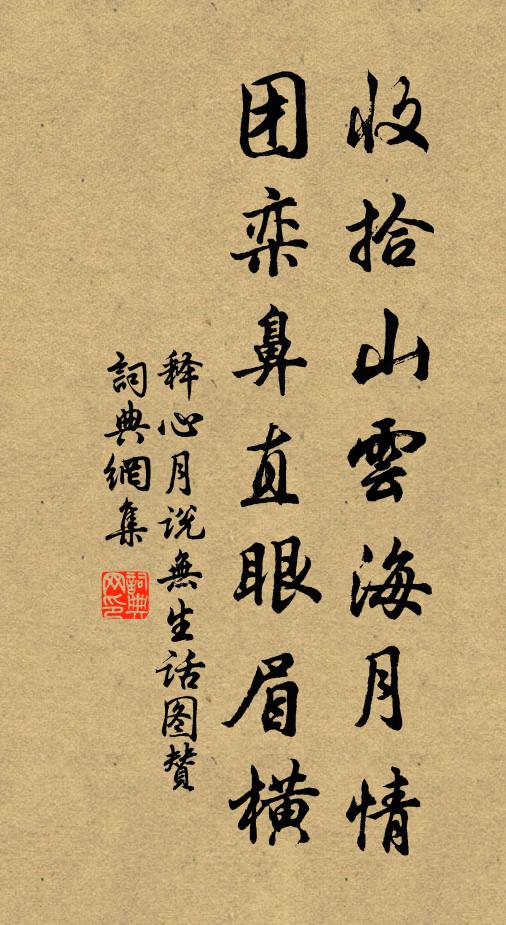 收拾山雲海月情
团栾鼻直眼眉橫
释心月说無生话图赞
詞典網集
詞典
网印